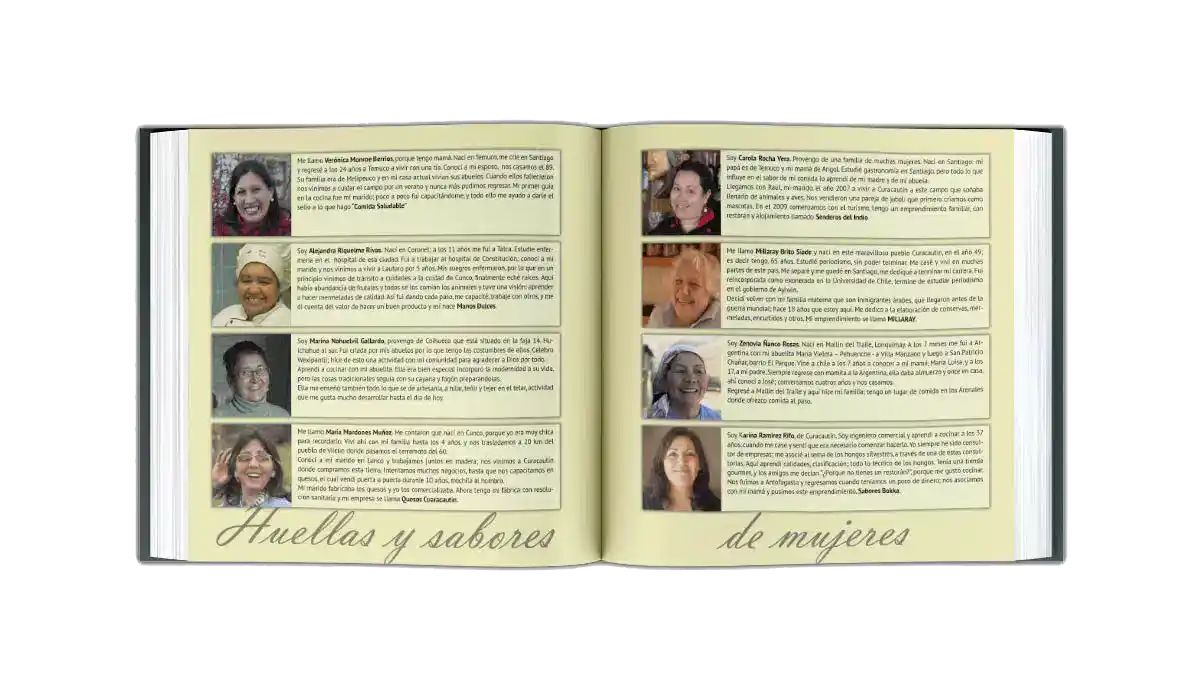 Me llamo Verónica Monroe Berrios, porque tengo mamá. Nací en Temuco, me crie en Santiago
y regresé a los 24 años a Temuco a vivir con una tía. Conocí a mi esposo, nos casamos el 89.
Su familia era de Melipeuco y en mi casa actual vivían sus abuelos. Cuando ellos fallecieron
nos vinimos a cuidar el campo por un verano y nunca más pudimos regresar. Mi primer guía
en la cocina fue mi marido; poco a poco fui capacitándome, y todo ello me ayudó a darle el
sello a lo que hago "Comida Saludable"
Soy Alejandra Riquelme Rivas. Nací en Coronel; a los 11 años me fui a Talca. Estudie enfer-
mería en el hospital de esa ciudad. Fui a trabajar al hospital de Constitución; conocí a mi
marido y nos vinimos a vivir a Lautaro por 5 años. Mis suegros enfermaron, por lo que en un
principio vinimos de tránsito a cuidarles a la cuidad de Cunco, finalmente eché raíces. Aquí
había abundancia de frutales y todos se los comían los animales y tuve una visión: aprender
a hacer mermeladas de calidad. Así fui dando cada paso, me capacité, trabaje con otros, y me
di cuenta del valor de hacer un buen producto y así nace Manos Dulces.
Soy Marina Nahuelvil Gallardo, provengo de Coihueco que está situado de la faja 14, Hu-
ichahue al sur. Fui criada por mis abuelos por lo que tengo las costumbres de ellos. Celebra
Wexipantü; hice de esto una actividad con mi comunidad para agradecer a Dios por todo.
Aprendí a cocinar con mi abuelita. Ella era bien especial incorporó la modernidad a su vejez,
pero las cosas tradicionales seguía con su cayana y fogón preparándolas.
Ella me enseñó también todo lo que se de artesanía, a hilar, teñir y tejer en el telar, actividad
que me gusta mucho desarrollar hasta el día de hoy.
Me llamo María Mardones Muñoz. Me contaron que nací en Cunco, porque yo era muy chica
para recordarlo. Viví ahí con mi familia hasta los 4 años, y nos trasladamos a 20 km del
pueblo de Vilcún donde pasamos el terremoto del 60.
Conocí a mi marido en Lanco y trabajamos juntos en madera; nos vinimos a Curacautín
donde compramos esta tierra. Intentamos muchos negocios, hasta que nos capacitamos en
quesos, el cual vendí puerta a puerta durante 10 años, mochila al hombro.
Mi marido fabricaba los quesos y yo los comercializaba. Ahora tengo mi fábrica con resolu-
ción sanitaria y mi empresa se llama Quesos Cuaracautín.
Huellas y sabores
Soy Carola Rocha Vera. Provengo de una familia de muchas mujeres. Nací en Santiago; mi
papá es de Temuco y mi mamá de Angol. Estudié gastronomía en Santiago, pero todo lo que
influye en el sabor de mi comida lo aprendí de mi madre y de mi abuela.
Llegamos con Raúl, mi marido, el año 2007 a vivir a Curacautín a este campo que soñaba
llenarlo de animales y aves. Nos vendieron una pareja de jabalí que primero criamos como
mascotas. En el 2009 comenzamos con el turismo, tengo un emprendimiento familiar, con
restorán y alojamiento llamado Senderos del Indio.
Me llamo Millaray Brito Siade y nací en este maravilloso pueblo Curacautín, en el año 49;
es decir tengo, 65 años. Estudié periodismo, sin poder terminar. Me casé y viví en muchas
partes de este país. Me separé y me quedé en Santiago, me dediqué a terminar mi carrera. Fui
reincorporada como exonerada en la Universidad de Chile, terminé de estudiar periodismo
en el gobierno de Aylwin.
Decidí volver con mi familia materna que son inmigrantes árabes, que llegaron antes de la
guerra mundial; hace 18 años que estoy aquí. Me dedico a la elaboración de conservas, mer-
meladas, encurtidos y otros. Mi emprendimiento se llama MILLARAY.
Soy Zenovia Ñanco Rosas. Nací en Mallín del Traile, Lonquimay. A los 7 meses me fui a Ar-
gentina con mi abuelita María Vielma – Pehuenche - a Villa Manzano y luego a San Patricio
Chañar, barrio El Parque. Vine a chile a los 7 años a conocer a mi mamá; María Luisa, y a los
17, a mi padre. Siempre regresé con mamita a la Argentina, ella daba almuerzo y once en casa,
ahí conocí a José; conversamos cuatros años y nos casamos.
Regresé a Mallín del Traile y aquí hice mi familia; tengo un lugar de comida en los Arenales
donde ofrezco comida al paso.
Soy Karina Ramírez Rifo, de Curacautín. Soy ingeniero comercial y aprendí a cocinar a los 37
años; cuando me casé y sentí que era necesario comenzar hacerlo. Yo siempre he sido consul-
tor de empresas; me asocié al tema de los hongos silvestres, a través de una de estas consul-
torías. Aquí aprendí calidades, clasificación; todo lo técnico de los hongos. Tenía una tienda
gourmet, y los amigos me decían "¿Porque no tienes un restorán?", porque me gustó cocinar.
Nos fuimos a Antofagasta y regresamos cuando teníamos un poco de dinero; nos asociamos
con mi mamá y pusimos este emprendimiento, Sabores Bokka.
de mujeres